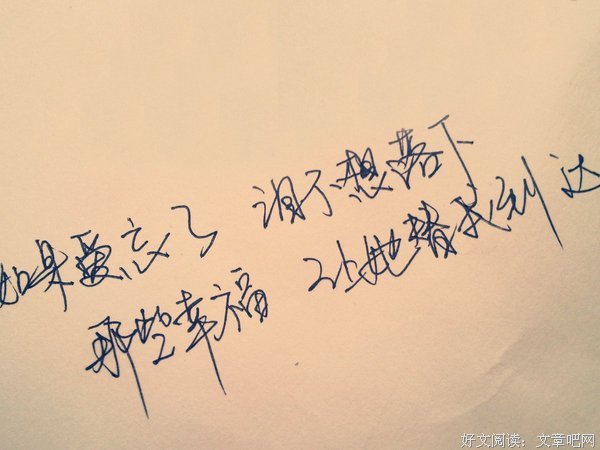 如果爱忘了 泪不想落下
那些幸福 让她替我到达
好文阅读：文章吧网